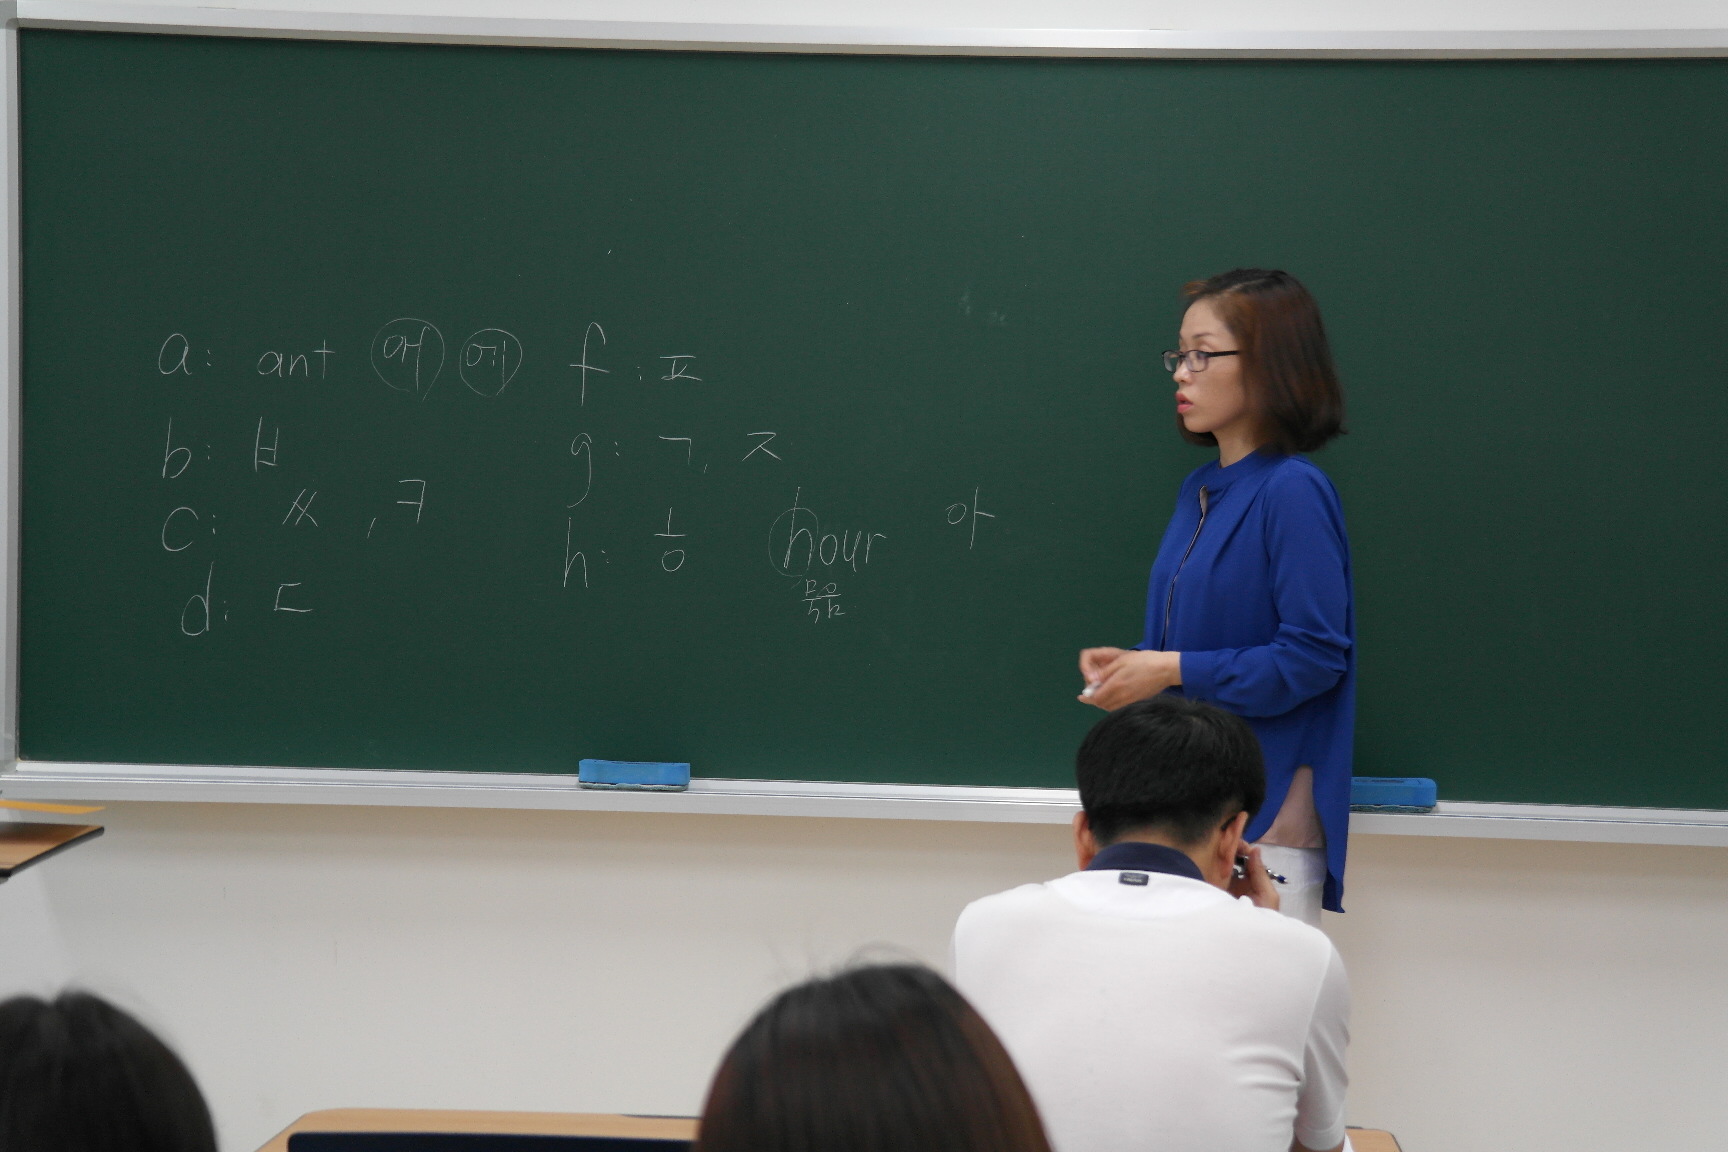 a: ant 애 에
b: ㅂ
c: ㅆ, ㅋ
d: ㄷ
f: ㅍ
g: ㄱ, ㅈ
h: ㅎ hour 아
묵음